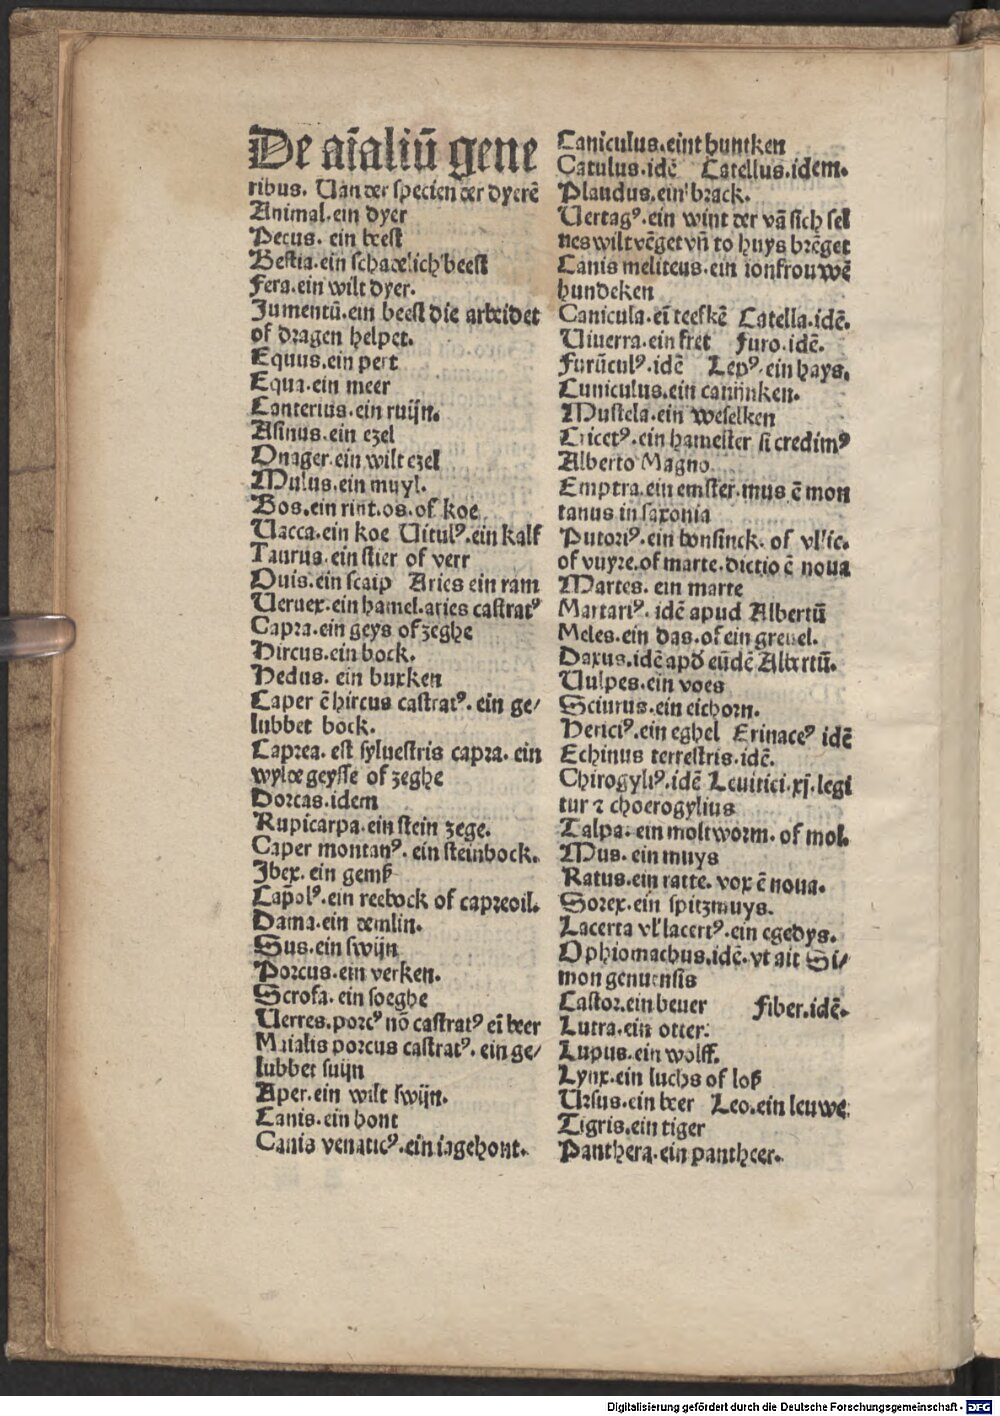 De aīaliū gene
ribus. Uan der specien der dyerē
Animal. ein dyer
Pecus. ein beest
Bestia. ein schadelich beest
Fera. ein wilt dyer.
Jumentū. ein beest die arbeidet
of dragen helpet.
Equus. ein pert
Equa. ein meer
Canterius. ein ruijn.
Asinus. ein ezel
Onager. ein wilt ezel
Mulus. ein muyl.
Bos. ein rint. os. of koe
Uacca. ein koe Uitulꝰ. ein kalf
Taurus. ein stier of verr
Ouis. ein scaip Aries ein ram
Ueruex. ein hamel. aries castratꝰ
Capra. ein geys of zeghe
Hircus. ein bock.
Hedus. ein buxken
Caper ē hircus castratꝰ. ein ge/
lubbet bock.
Caprea. est syluestris capra. ein
wylde geysse of zeghe
Dorcas. idem
Rupicarpa. ein stein zege.
Caper montanꝰ. ein steinbock.
Jbex. ein gemß
Cap̄olꝰ. ein reebock of capreoil.
Dama. ein demlin.
Sus. ein swijn
Porcus. ein verken.
Scrofa. ein soeghe
Uerres. porcꝰ nō castratꝰ eī beer
Maialis porcus castratꝰ. ein ge/
lubbet suijn
Aper. ein wilt swijn.
Canis. ein hont
Canis venaticꝰ. ein iagehont.
Caniculus. eint huntken
Catulus. idē Catellus. idem.
Plaudus. ein brack.
Uertagꝰ. ein wint der vā sich sel
nes wilt vēget vn̄ to huys brēget
Canis meliteus. ein ionfrouwē
hundeken
Canicula. eī teefkē Catella. idē.
Uiuerra. ein fret Furo. idē.
Furūculꝰ. idē Lepꝰ. ein hays.
Cuniculus. ein canijnken.
Mustela. ein weselken
Cricetꝰ. ein hamester si credimꝰ
Alberto Magno
Emptra. ein emster. mus ē mon
tanus in saxonia
Putoriꝰ. ein bonsinck. of vl'ic.
of vuyre. of marte. dictio ē noua
Martes. ein marte
Martariꝰ. idē apud Albertū
Meles. ein das. of ein greuel.
Daxus. idē apd̕ eūdē Albertū.
Uulpes. ein voes
Sciurus. ein eichorn.
Hericiꝰ. ein eghel Erinaceꝰ idē
Echinus terrestris. idē.
Chirogyliꝰ. idē Leuitici. xj. legi
tur ⁊ choerogylius
Talpa. ein moltworm. of mol.
Mus. ein muys
Ratus. ein ratte. vox ē noua.
Sorex. ein spitzmuys.
Lacerta vl' lacertꝰ. ein egedys.
Ophiomachus. idē. vt ait Si/
mon genuensis
Castor. ein beuer Fiber. idē.
Lutra. ein otter.
Lupus. ein wolff.
Lynx. ein luchs of loß
Ursus. ein beer Leo. ein leuwe
Tigris. ein tiger
Panthera. ein pantheer.
Digitalisierung gefördert durch die Deutsche Forschungsgemeinschaft - DFG